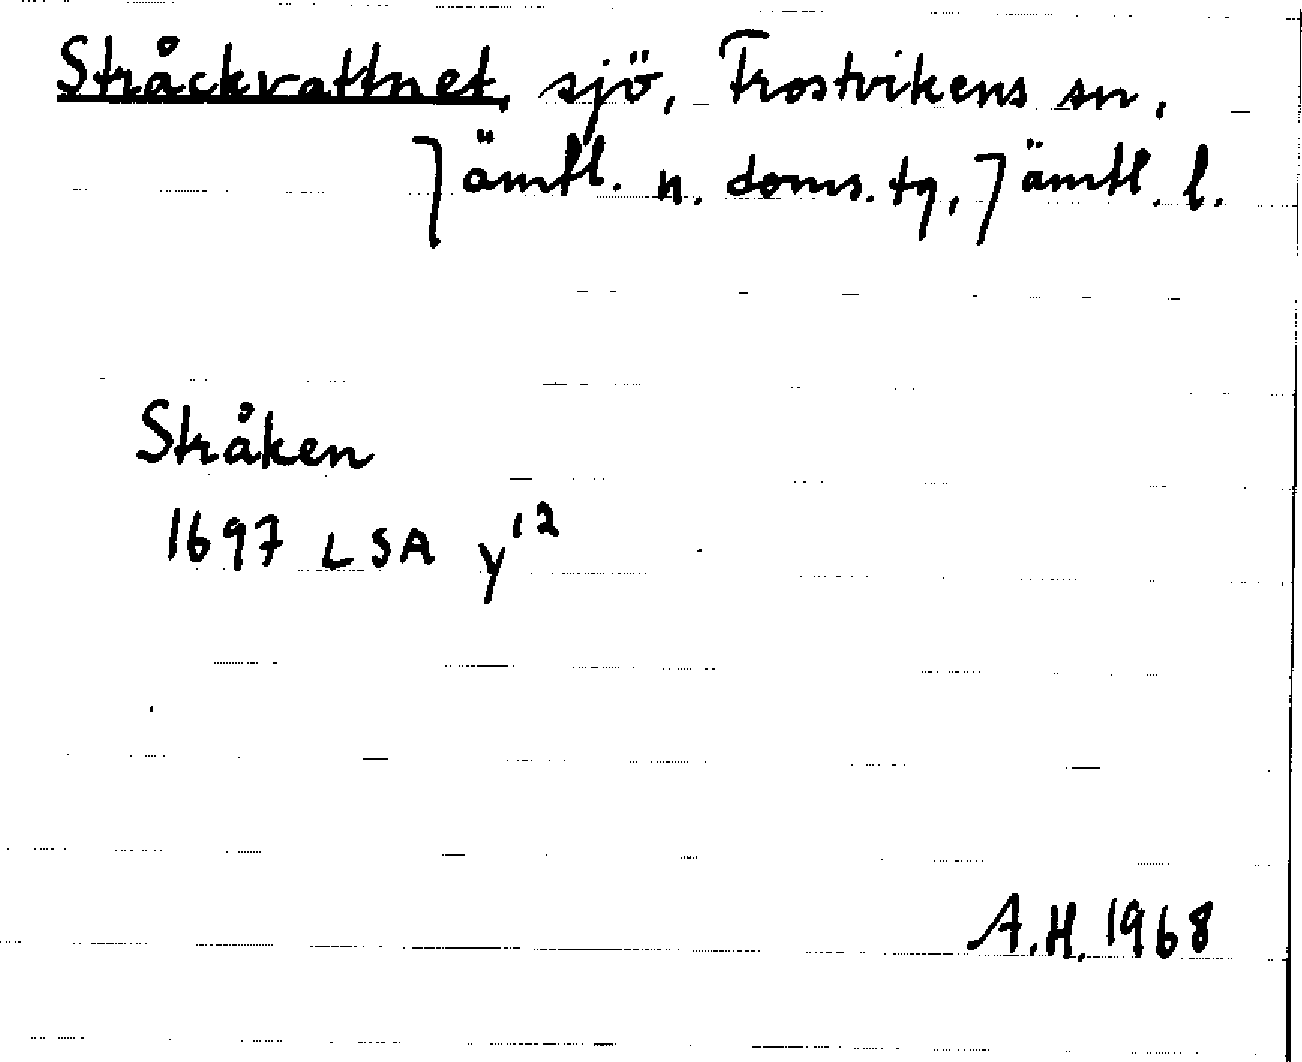 Stråckvattnet, sjö, Frostvikens sn,
Jämtl. n. doms. tg, Jämtl. l.
Stråken
1697 LSA y¹²
A.H. 1968